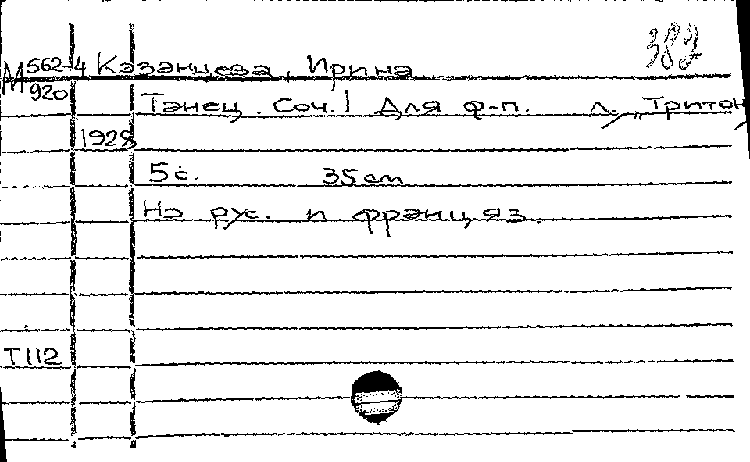 382
М 562-4 Казанцева, Ирина
920
Танец. Соч. 1 Для ф-п. Л., "Тритон
1928
5 с. 35 cm
На рус. и француз.
Т112